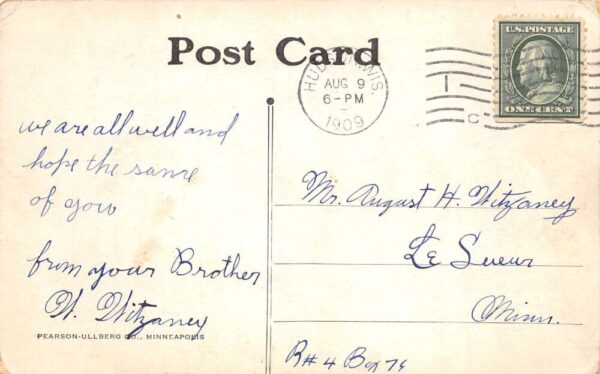 Post Card
HUDSON, WIS.
AUG 9
6-PM
1909
U.S. POSTAGE
ONE CENT
we are all well and
hope the same
of you
from your Brother
W. Witzaney
PEARSON-ULLBERG CO., MINNEAPOLIS
Mr. August H. Witzaney
Le Sueur
Minn.
R#4 Box 76